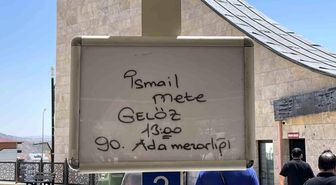 İsmail
Mete
GELÖZ
13:00
90. Ada mezarlıpi
2